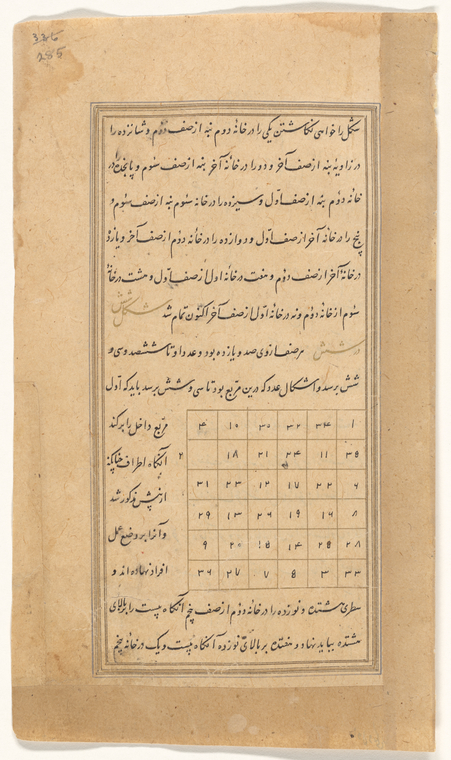 326
285
شکل را خواهی نگاشتن یکی را در خانهٔ دوم نبه از صف دوم و شانزده را
در زاویه بنه از صف آخر و دو را در خانهٔ آخر بنه از صف سوم و پانجده را در
خانه دوم بنه از صف اول و سیزده را در خانه سوم بنه از صف سوم و
پنج را در خانه آخر از صف اول و دوازده را در خانه دوم از صف آخر و یازده
در خانه آخر از صف دوم و هفت در خانه اول از صف اول و هشت در خانه
سوم از خانه دوم و نه در خانه اول از صف آخر اکنون تمام شد شکل شش
در شش هر صف ازوی صد و یازده بود و عدد او تا ششصد و سی و
شش برسد و اشکال عدد که درین مربع بود تا سی و شش برسد باید که اول
مربع داخل را پر کند
آنگاه اطراف چنانکه
ازپیش مذکور شد
و آنرا بر وضع عمل
افراد نهاده اند و
۴ ۱۰ ۳۰ ۳۲ ۳۴ ۱
۲ ۱۸ ۲۱ ۲۴ ۱۱ ۳۵
۳۱ ۲۳ ۱۲ ۱۷ ۲۲ ۶
۲۹ ۱۳ ۲۶ ۱۹ ۱۶ ۸
۹ ۲۰ ۱۵ ۱۴ ۲۵ ۲۸
۳۶ ۲۷ ۷ ۵ ۳ ۳۳
سطری هشتده و نوزده را در خانه دوم از صف پنجم آنگاه بیست را بر بالای
هشتده بباید نهاد و هفتده بر بالای نوزده آنگاه بیست و یک در خانه پنجم